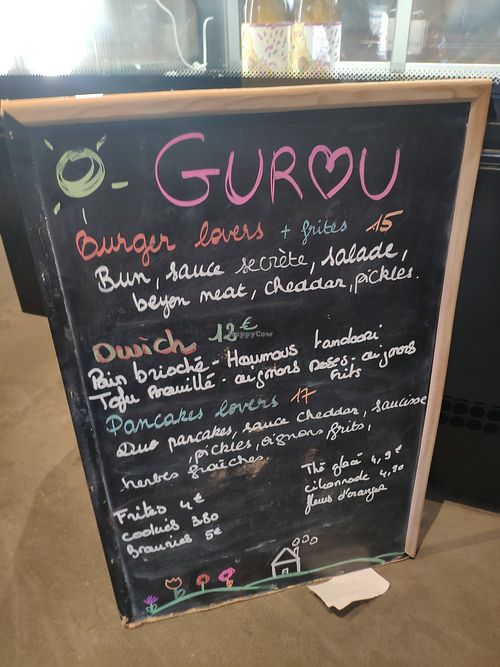 GUROU
Burger lovers + frites 15
Bun, sauce secrète, salade,
beyon meat, cheddar, pickles.
Dwich 12€
Pain brioché - Houmous tandoori
Tofu brouillé - oignons roses - oignons
frits
Pancakes lovers 17
Duo pancakes, sauce cheddar, saucisse
, pickles, oignons frits,
herbes fraîches.
Frites 4€
cookies 3.80
Brownies 5€
Thé glacé 4,9€
citronnade 4,90
fleurs d'oranger
HappyCow